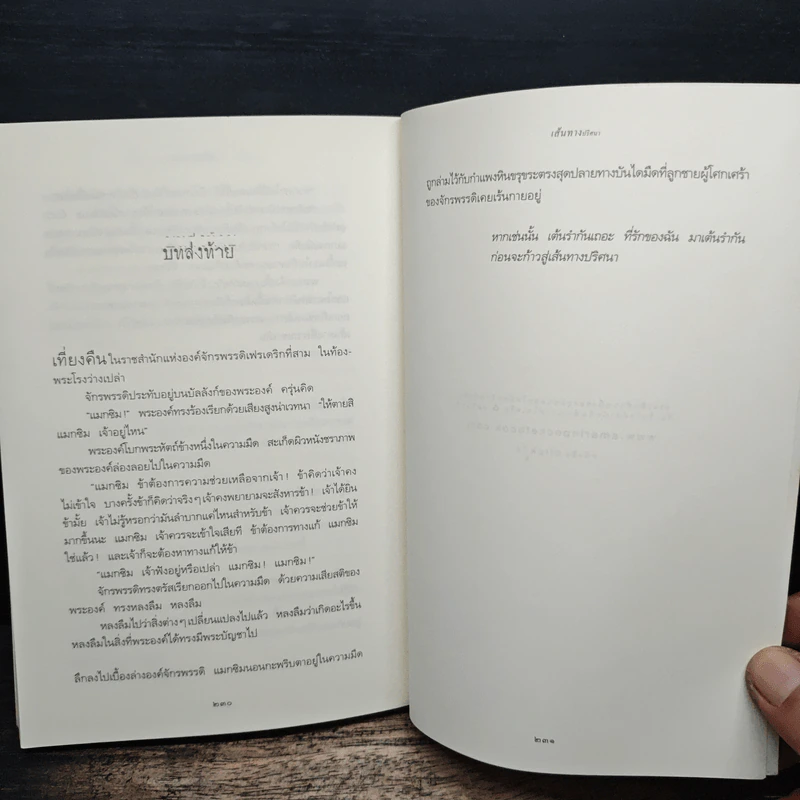 บทส่งท้าย
เที่ยงคืนในราชสำนักแห่งองค์จักรพรรดิเฟรเดริกที่สาม ในท้อง-
พระโรงว่างเปล่า
จักรพรรดิประทับอยู่บนบัลลังก์ของพระองค์ ครุ่นคิด
"แมกซิม!" พระองค์ทรงร้องเรียกด้วยเสียงสูงน่าเวทนา "ให้ตายสิ
แมกซิม เจ้าอยู่ไหน"
พระองค์โบกพระหัตถ์ข้างหนึ่งในความมืด สะเก็ดผิวหนังชราภาพ
ของพระองค์ล่องลอยไปในความมืด
"แมกซิม ข้าต้องการความช่วยเหลือจากเจ้า! ข้าคิดว่าเจ้าคง
ไม่เข้าใจ บางครั้งข้าก็คิดว่าจริงๆ เจ้าคงพยายามจะสังหารข้า! เจ้าได้ยิน
ข้ามั้ย เจ้าไม่รู้หรอกว่ามันลำบากแค่ไหนสำหรับข้า เจ้าควรจะช่วยข้าให้
มากขึ้นนะ แมกซิม เจ้าควรจะเข้าใจเสียที ข้าต้องการทางแก้ แมกซิม
ใช่แล้ว! และเจ้าก็จะต้องหาทางแก้ให้ข้า
"แมกซิม เจ้าฟังอยู่หรือเปล่า แมกซิม! แมกซิม!"
จักรพรรดิทรงตรัสเรียกออกไปในความมืด ด้วยความเสียสติของ
พระองค์ ทรงหลงลืม หลงลืม
หลงลืมไปว่าสิ่งต่างๆ เปลี่ยนแปลงไปแล้ว หลงลืมว่าเกิดอะไรขึ้น
หลงลืมในสิ่งที่พระองค์ได้ทรงมีพระบัญชาไป
ลึกลงไปเบื้องล่างองค์จักรพรรดิ แมกซิมนอนกะพริบตาอยู่ในความมืด
๒๓๐
เส้นทางปริศนา
ถูกล่ามไว้กับกำแพงหินขรุขระตรงสุดปลายทางบันไดมืดที่ลูกชายผู้โศกเศร้า
ของจักรพรรดิเคยเร้นกายอยู่
หากเช่นนั้น เต้นรำกันเถอะ ที่รักของฉัน มาเต้นรำกัน
ก่อนจะก้าวสู่เส้นทางปริศนา
๒๓๑